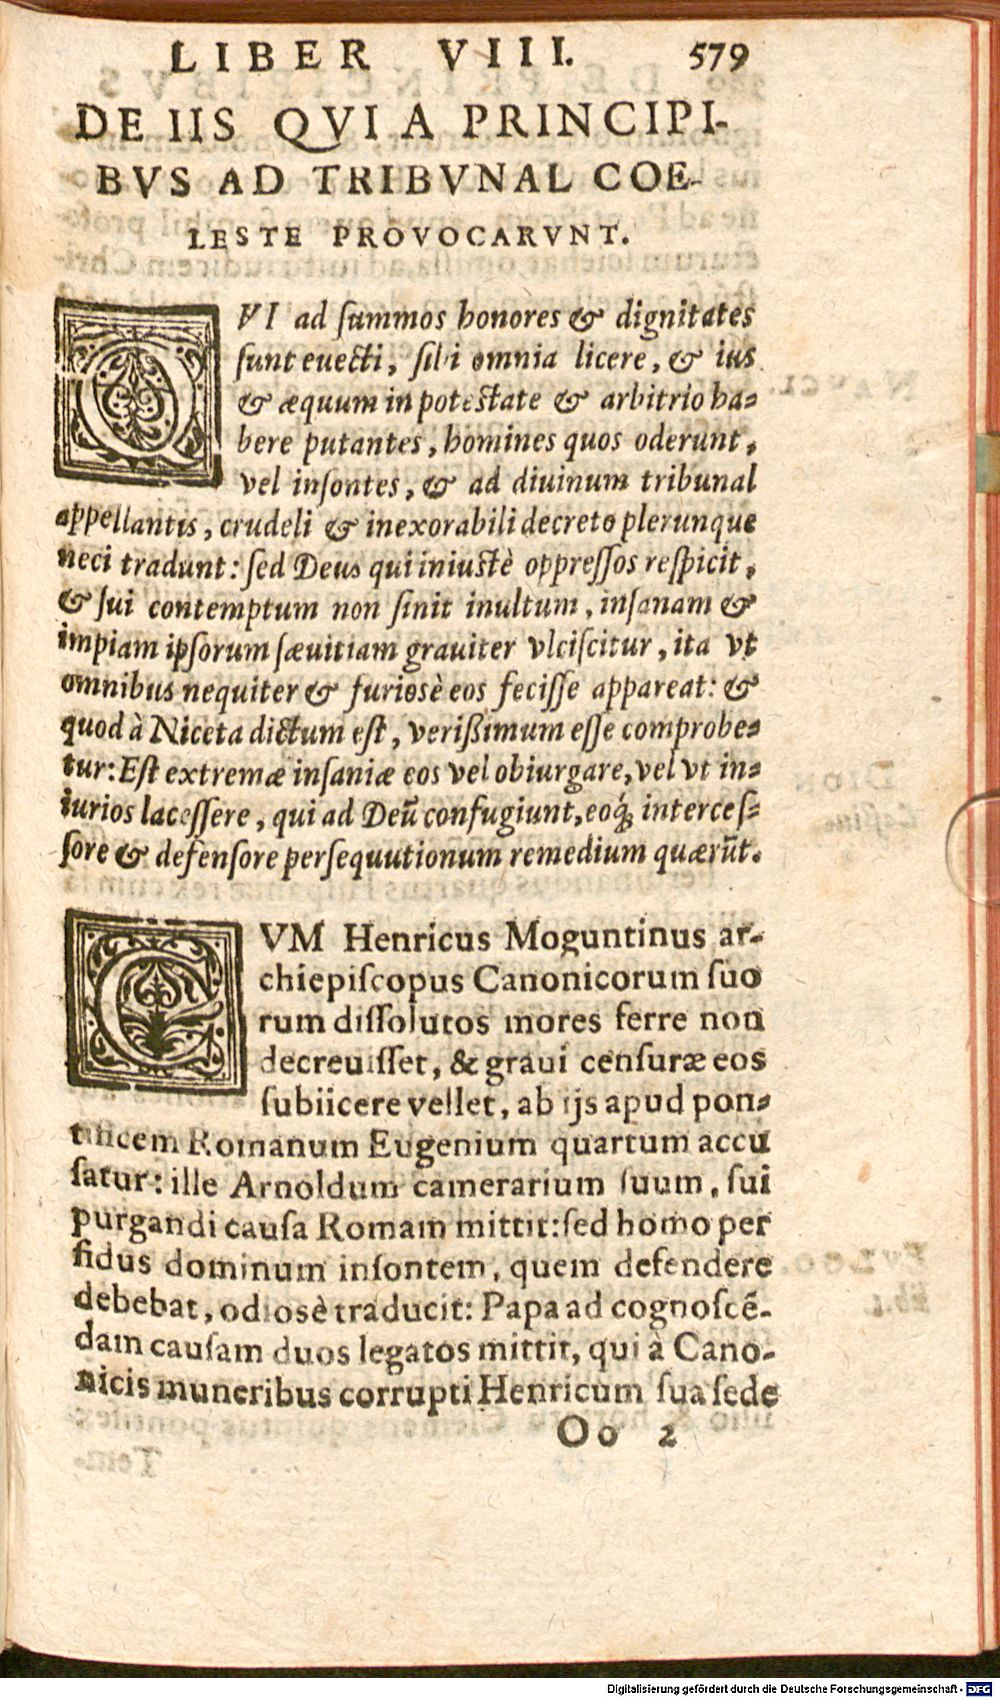 LIBER VIII. 579
DE IIS QVI A PRINCIPI-
BVS AD TRIBVNAL COE-
LESTE PROVOCARVNT.
QVI ad ſummos honores & dignitates
ſunt euecti, ſibi omnia licere, & ius
& æquum in poteſtate & arbitrio ha-
bere putantes, homines quos oderunt,
vel inſontes, & ad diuinum tribunal
appellantis, crudeli & inexorabili decreto plerunque
neci tradunt: ſed Deus qui iniuſtè oppreſſos reſpicit,
& ſui contemptum non ſinit inultum, inſanam &
impiam ipſorum ſæuitiam grauiter vlciſcitur, ita vt
omnibus nequiter & furiosè eos feciſſe appareat: &
quod à Niceta dictum eſt, verißimum eſſe comprobe-
tur: Eſt extremæ inſaniæ eos vel obiurgare, vel vt in-
iurios laceſſere, qui ad Deū confugiunt, eoq́; interceſ-
ſore & defenſore perſequutionum remedium quærūt.
CVM Henricus Moguntinus ar-
chiepiſcopus Canonicorum ſuo
rum diſſolutos mores ferre non
decreuiſſet, & graui cenſuræ eos
ſubiicere vellet, ab ijs apud pon-
tificem Romanum Eugenium quartum accu
ſatur: ille Arnoldum camerarium ſuum, ſui
purgandi cauſa Romam mittit: ſed homo per
fidus dominum inſontem, quem defendere
debebat, odiosè traducit: Papa ad cognoſcē-
dam cauſam duos legatos mittit, qui à Cano-
nicis muneribus corrupti Henricum ſua ſede
Oo 2
Digitalisierung gefördert durch die Deutsche Forschungsgemeinschaft - DFG